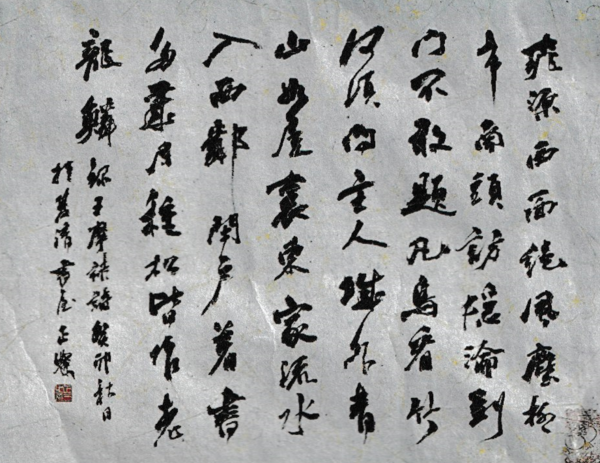 桃源西面絕風塵柳
市南頭訪隱淪到
門不敢題凡鳥看竹
何須問主人城外青
山如屋裏東家流水
入西鄰閉戶著書
多歲月種松皆作老
龍鱗 錄王摩詰詩癸卯秋日
清書屋